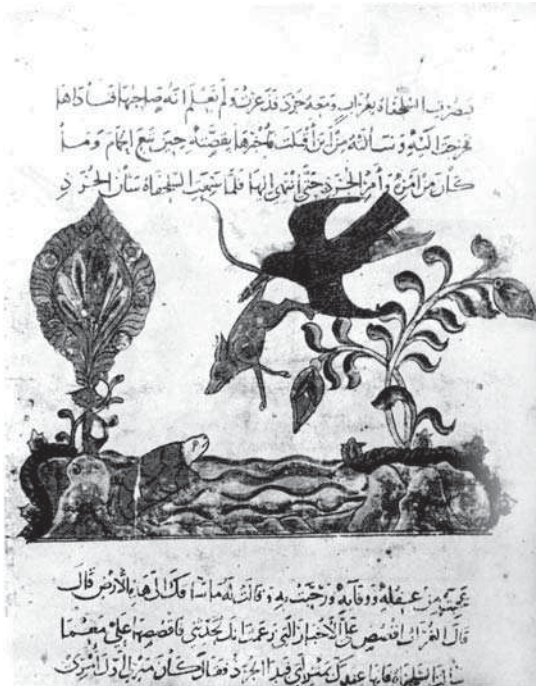 فبصرت السلحفاة بغراب ومعه جرذ فذعرت ولم تعلم انه صاحبها فناداها
فخرجت اليه وسألته من اين اقبلت فاخبرها بقصته حين تبع الحمام وما
كان من امره وامر الجرذ حتى انتهى اليها فلما سمعت السلحفاة شان الجرذ
عجبت من عقله ووفايه ورحبت به وقالت له ما ساقك الى قال
قال الغراب اقصص على الاخبار التي زعمت انك تحدثني فاقصصها علي مع ما
سالت السلحفاة فانها عندك بمنزلتي فبدا الجرذ فقال كان منزلي اول امري